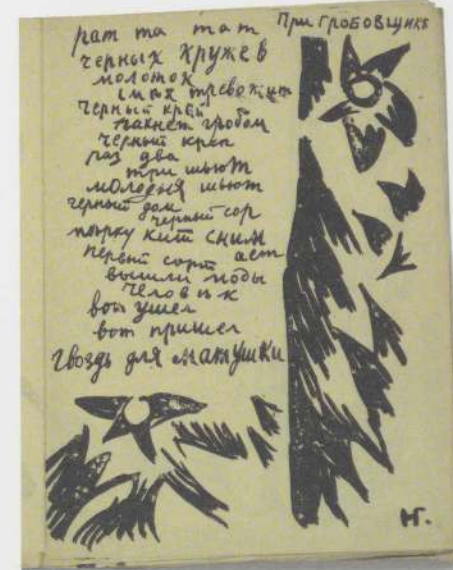 При гробовщикъ
рат та тат
черных кружев
молоток
тревожит
черный креп
пахнет гробом
черный креп
раз два
три шьют
молодыя шьют
черный дом
черный сор
кит сним
первый сорт ает
вышли моды
человѣк
вот ушел
вот пришел
гвоздь для матушки
НГ.